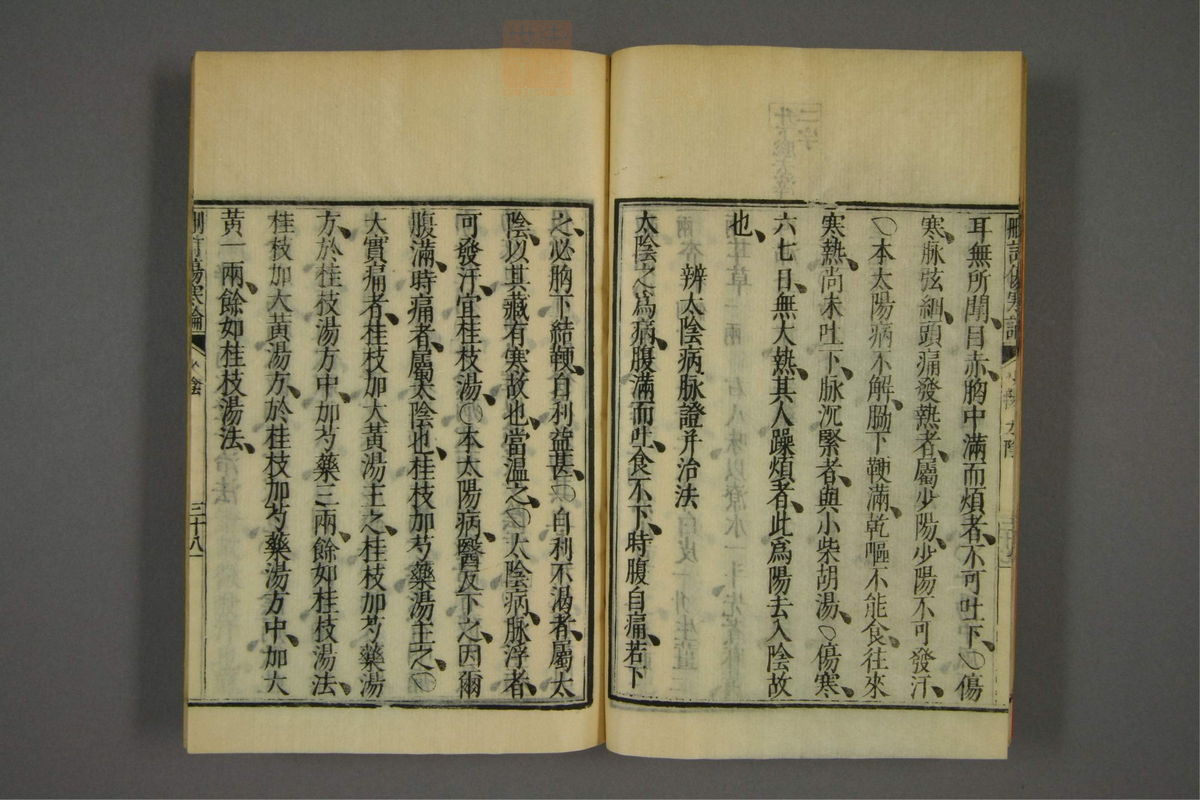 耳無所聞、目赤、胸中滿而煩者、不可吐下、〇傷
寒、脉弦細、頭痛發熱者、屬少陽、少陽不可發汗、
〇本太陽病不解、脇下鞕滿、乾嘔不能食、往來
寒熱、尚未吐下、脉沉緊者、與小柴胡湯、〇傷寒、
六七日、無大熱、其人躁煩者、此爲陽去入陰故
也、
辨太陰病脉證并治法
太陰之爲病、腹滿而吐、食不下、時腹自痛、若下
之、必胸下結鞕、自利益甚、〇自利不渴者、屬太
陰、以其藏有寒故也、當溫之、〇太陰病、脉浮者、
可發汗、宜桂枝湯、〇本太陽病、醫反下之、因爾
腹滿、時痛者、屬太陰也、桂枝加芍藥湯主之、〇
大實痛者、桂枝加大黃湯主之、桂枝加芍藥湯
方、於桂枝湯方中、加芍藥三兩、餘如桂枝湯法、
桂枝加大黃湯方、於桂枝加芍藥湯方中、加大
黃一兩、餘如桂枝湯法、
刪訂傷寒論
三十八